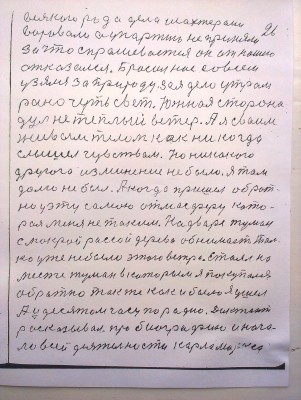 26
всякий рода дела шахтерами
варовали а у партии не приняли
За что спрашевается он от нашию
отказался. Бросил нас совсем
узялся за природу. Зая дело утрам
рано чуть свет. Южная сторона
дул не теплый ветер. А я своим
живем телом как ни когда
слышел чувствам. Но никакого
другого изминение не было. Я там
долго не был. А когда пришел обрат-
но у эту самою отмасферу кото-
рая меня не таким. На дваре туман
с мокрай рассой дерева обнимает. Толь
ко уже не было этого ветра. Стоял на
месте туман в котором я покупался
обратно так те как и было я ушел
А у десятом часу порадио.
расказывал про биографию и нача-
ло всей деятельности карламаркса